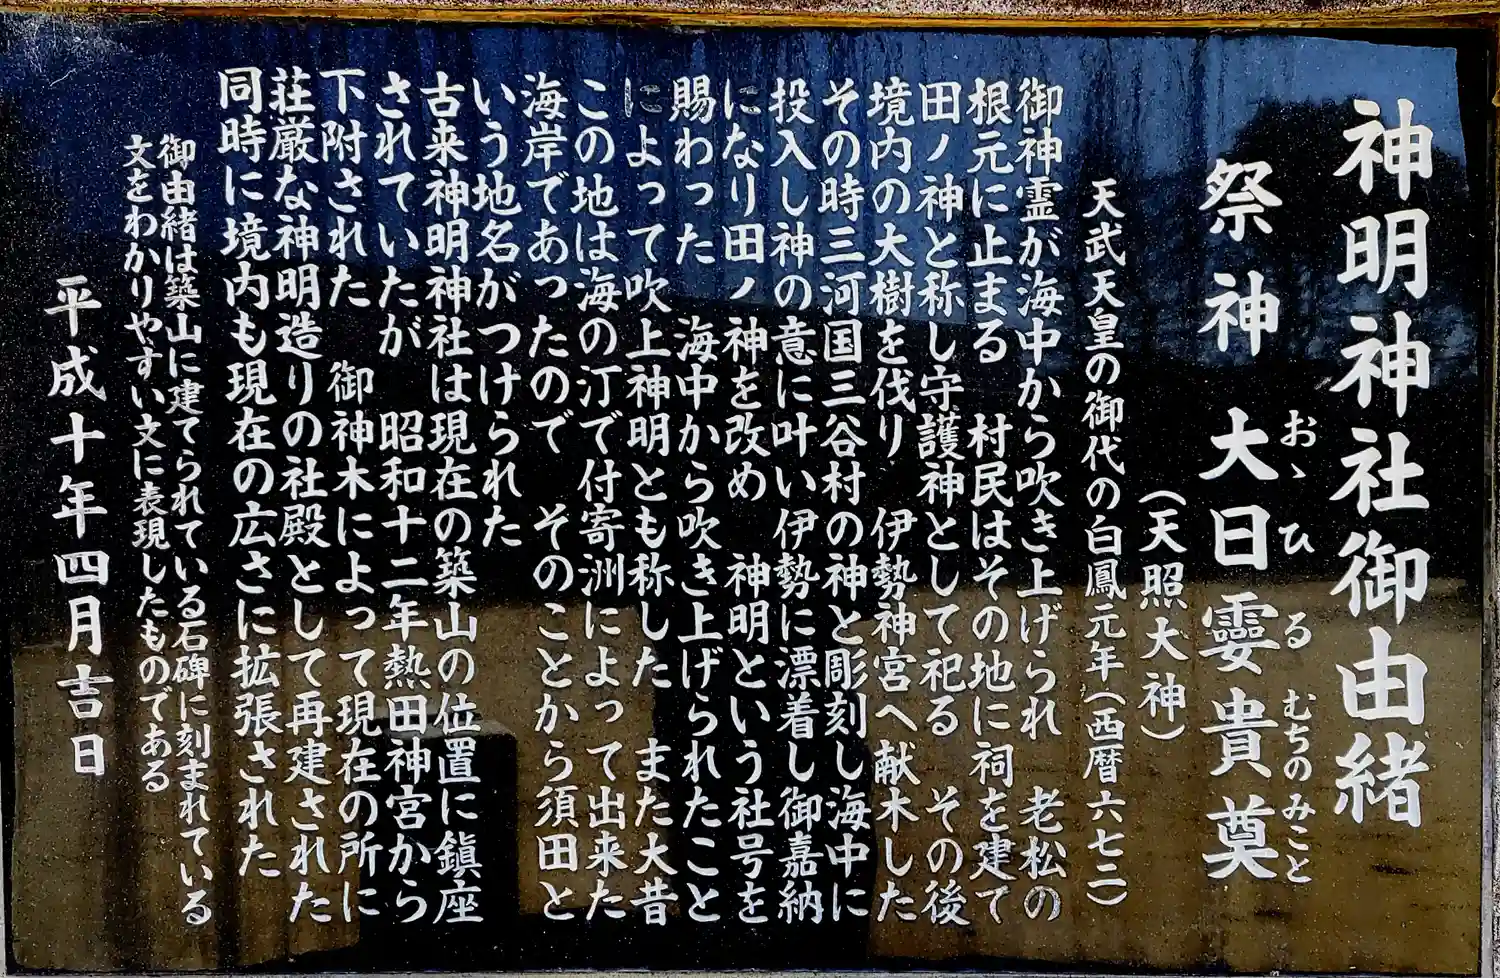 神明神社御由緒
祭神 大日孁貴奠
おゝひるむちのみこと
(天照大神)
天武天皇の御代の白鳳元年(西暦六七二)
御神霊が海中から吹き上げられ 老松の
根元に止まる 村民はその地に祠を建て
田ノ神と称し守護神として祀る その後
境内の大樹を伐り 伊勢神宮へ献木した
その時三河国三谷村の神と彫刻し海中に
投入し神の意に叶い伊勢に漂着し御嘉納
になり田ノ神を改め 神明という社号を
賜わった 海中から吹き上げられたこと
によって吹上神明とも称した また大昔
この地は海の汀で付寄洲によって出来た
海岸であったので そのことから須田と
いう地名がつけられた
古来神明神社は現在の築山の位置に鎭座
されていたが 昭和十二年熱田神宮から
下附された 御神木によって現在の所に
荘厳な神明造りの社殿として再建された
同時に境内も現在の広さに拡張された
御由緒は築山に建てられている石碑に刻まれている
文をわかりやすい文に表現したものである
平成十年四月吉日